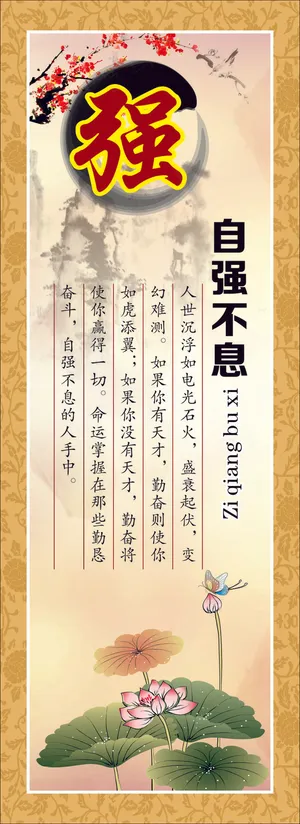 强
自强不息
Zi qiang bu xi
人世沉浮如电光石火，盛衰起伏，变
幻难测。如果你有天才，勤奋则使你
如虎添翼；如果你没有天才，勤奋将
使你赢得一切。命运掌握在那些勤恳
奋斗，自强不息的人手中。